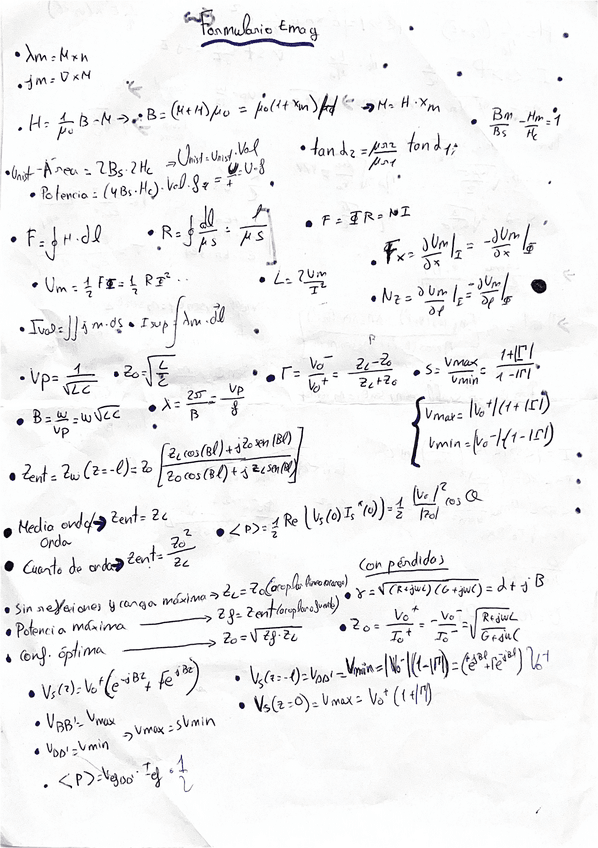 Formulario Emag
• λm = M x n
• jm = ∇ x M
• H = 1/μ0 B - M → • B = (H+M) μ0 = μ0(1+χm) → M = H · χm
• Bm/Bs - Hm/Hc = 1
• tan α2 = μr2/μr1 tan α1
• Unist - Área = 2Bs · 2Hc → Unist = Unist · Vol
• Potencia = (4Bs · Hc) · Vol · f = U/T = U · f
• F = ∮ H · dl • R = ∮ dl/μS = l/μS • F = ΦR = NI
• Fx = ∂Um/∂x |I = -∂Um/∂x |Φ
• Um = 1/2 FΦ = 1/2 RΦ² • L = 2Um/I² • Nz = ∂Um/∂ρ |I = -∂Um/∂ρ |Φ
• Ivol = ∬ jm · ds • Isup = ∫ λm · dl
• Vp = 1/√LC • Z0 = √L/C • Γ = V0⁻/V0⁺ = ZL-Z0/ZL+Z0 • S = Vmax/Vmin = 1+|Γ|/1-|Γ|
• B = ω/Vp = ω√LC • λ = 2π/B = Vp/f
Vmax = |V0⁺|(1+|Γ|)
Vmin = |V0⁻|(1-|Γ|)
• Zent = Zw (z=-l) = Z0 [ZL cos(Bl) + j Z0 sen(Bl) / Z0 cos(Bl) + j ZL sen(Bl)]
• Media onda → Zent = ZL • <P> = 1/2 Re (Vs(0) Is*(0)) = 1/2 |V0|²/|Z0| cos θ
Onda
• Cuarto de onda → Zent = Z0²/ZL
Con pérdidas
• Sin reflexiones y carga máxima → ZL = Z0 • γ = √(R+jωL)(G+jωC) = α + jB
• Potencia máxima → Zg = Zent • Z0 = V0⁺/I0⁺ = -V0⁻/I0⁻ = √R+jωL/G+jωC
• Conf. óptima → Z0 = √Zg·ZL
• Vs(z) = V0⁺(e^-jBz + Γe^jBz) • Vs(z=-l) = VDD' = Vmin = |V0⁻|(1-|Γ|) = (e^jBl + Γe^-jBl) V0⁺
• VBB' = Vmax • Vs(z=0) = Vmax = V0⁺(1+|Γ|)
• VDD' = Vmin → Vmax = SVmin
• <P> = VefDD' · Ief · 1/2